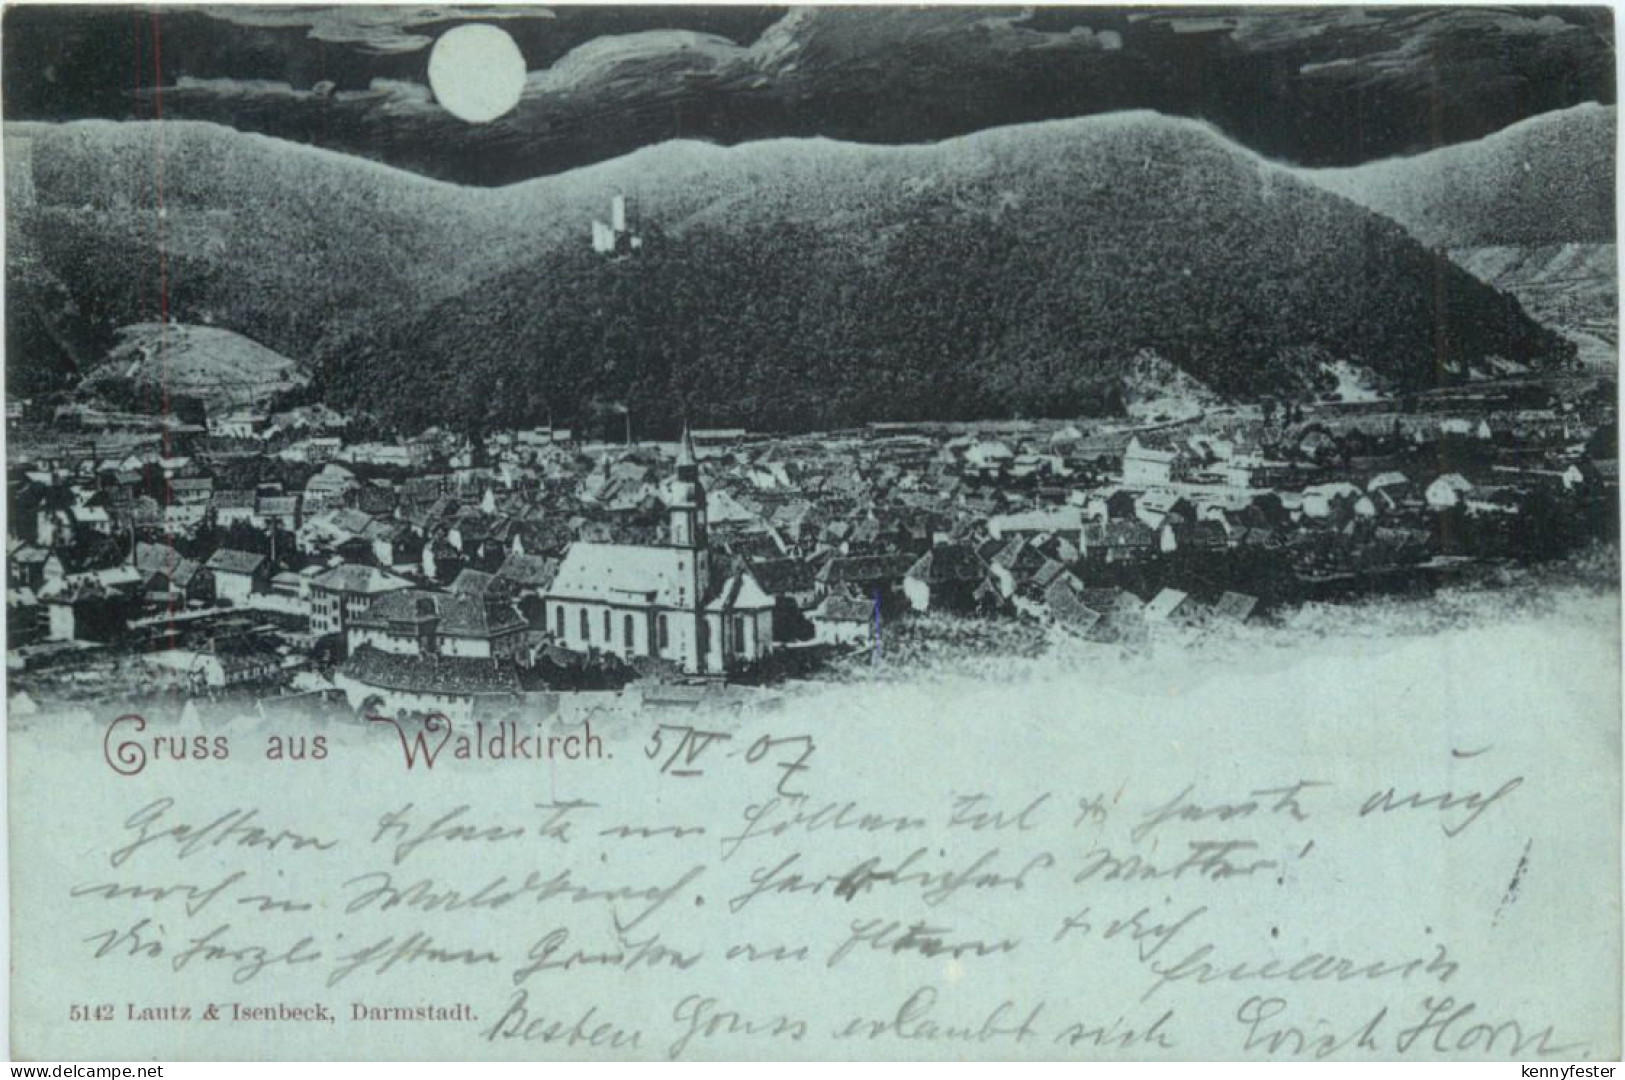 Gruss aus Waldkirch. 5/IV 07
Gestern & heute im Höllental & heute auch
noch in Waldkirch. Herrliches Wetter!
Die herzlichsten Grüsse an Eltern & dich
Friedrich
5142 Lautz & Isenbeck, Darmstadt.
Besten Gruss erlaubt sich Erich Horn.
delcampe.net
kennyfester